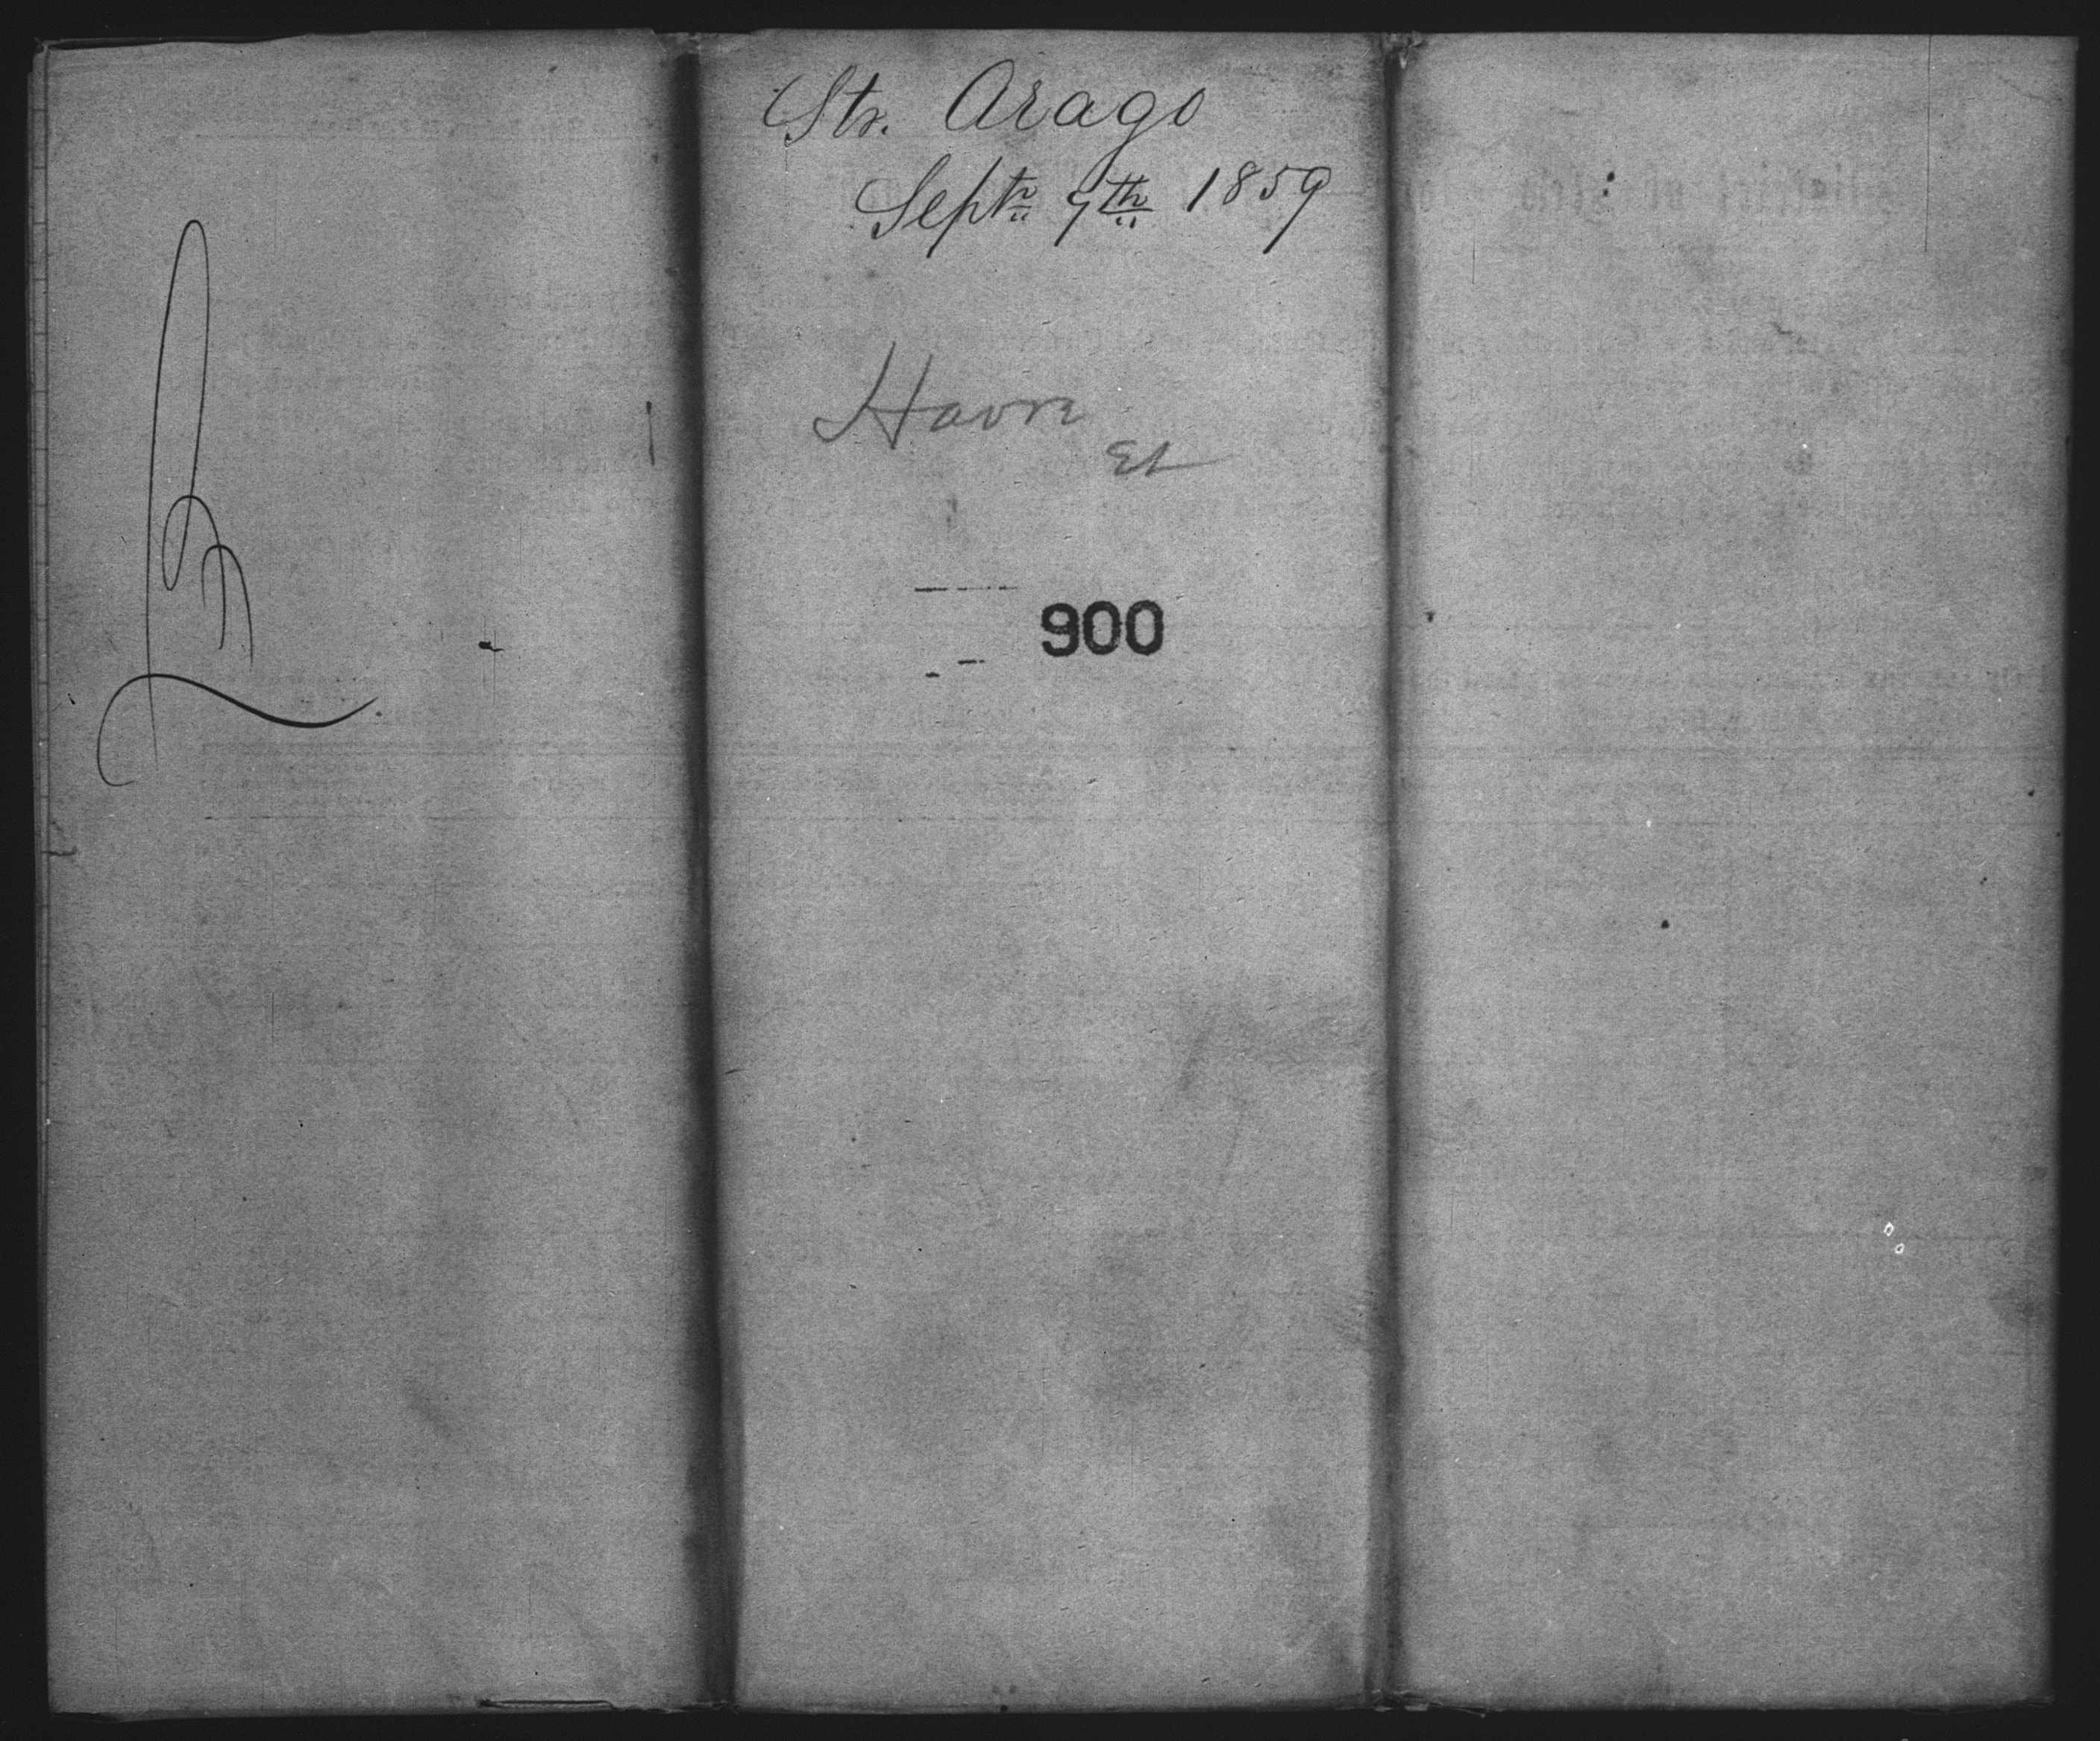 Str. Arago
Septr 9th 1859
Havre
900